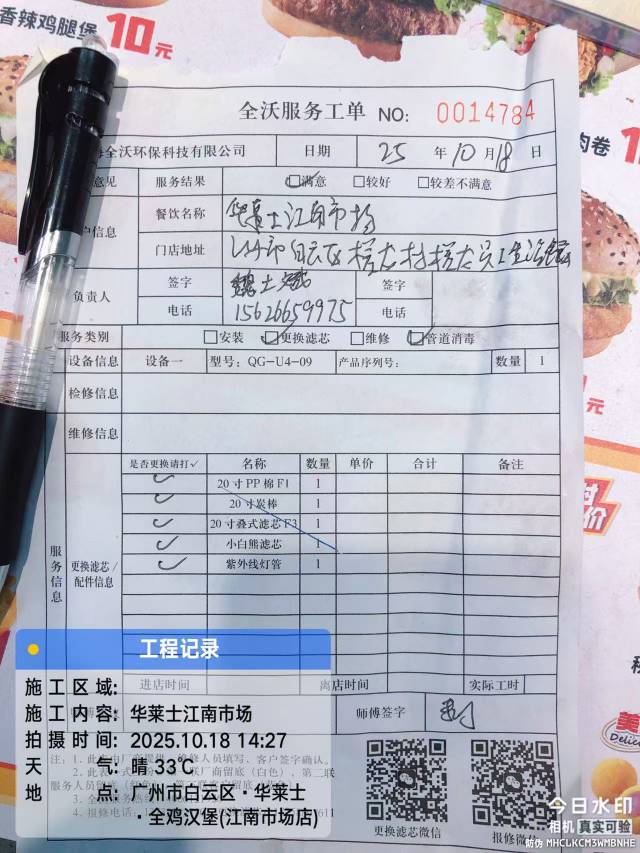 香辣鸡腿堡 10元
全沃服务工单 NO: 0014784
全沃环保科技有限公司 日期 25 年 10 月 18 日
意见 服务结果 满意 较好 较差不满意
信息 餐饮名称 华莱士江南市场
门店地址 市白云区
负责人 签字 签字
电话 15626659975 电话
服务类别 安装 更换滤芯 维修 管道消毒
设备信息 设备一 型号: QG-U4-09 产品序列号: 数量 1
检修信息
维修信息
服务信息
更换滤芯/配件信息
是否更换请打✓ 名称 数量 单价 合计 备注
✓ 20寸PP棉F1 1
✓ 20寸炭棒 1
✓ 20寸叠式滤芯F3 1
✓ 小白熊滤芯 1
✓ 紫外线灯管 1
进店时间 离店时间 实际工时
师傅签字
肉卷 1
元
价
美
Delic
工程记录
施工区域:
施工内容: 华莱士江南市场
拍摄时间: 2025.10.18 14:27
天气: 晴 33℃
地点: 广州市白云区·华莱士·全鸡汉堡(江南市场店)
更换滤芯微信
报修微信
今日水印
相机 真实可验
防伪 MHCLKCM3WMBNHE